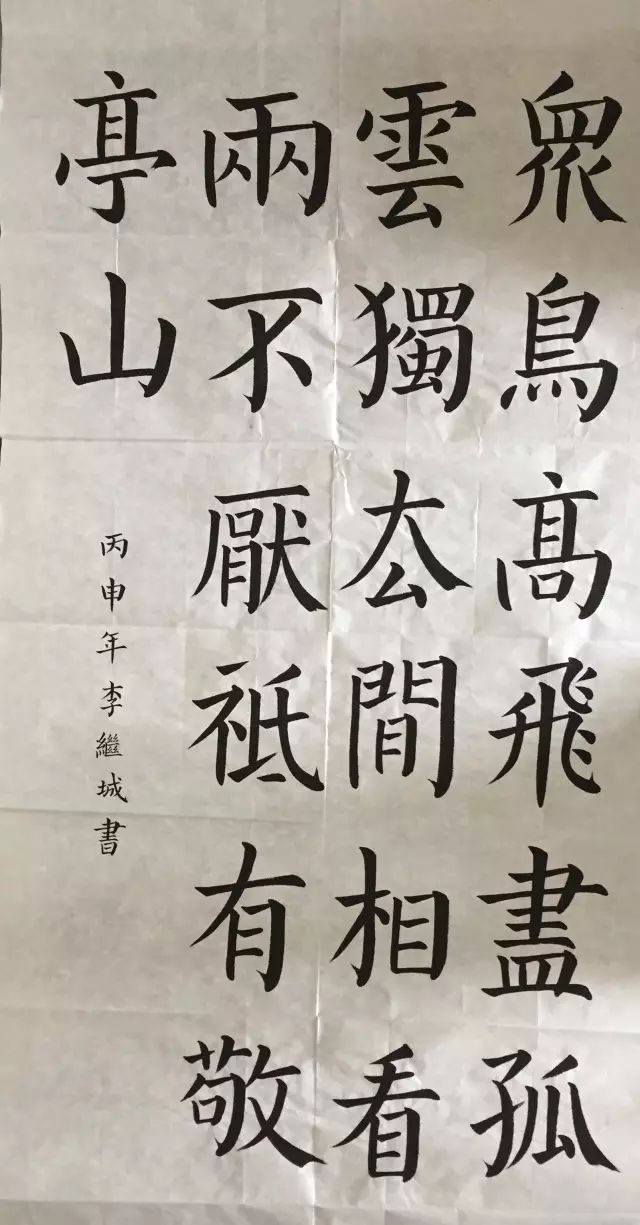 眾鳥高飛盡孤
雲獨厺閒相看
兩不厭祗有敬
亭山
丙申年李繼城書